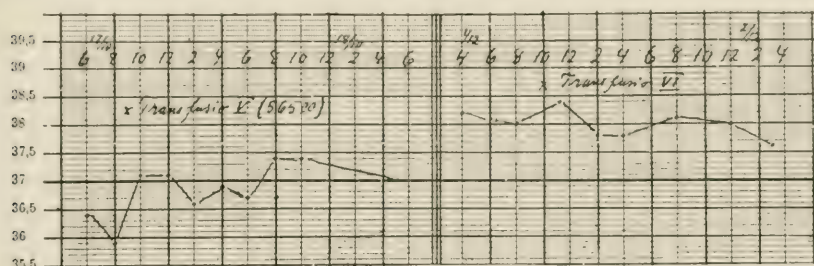 39,5
39
38,5
38
37,5
37
36,5
36
35,5
6 8 10 12 2 4 6 8 10 12 2 4 6
x Transfusio V (565 cc)
1/12 2/12
4 6 8 10 12 2 4 6 8 10 12 2 4
x Transfusio VI